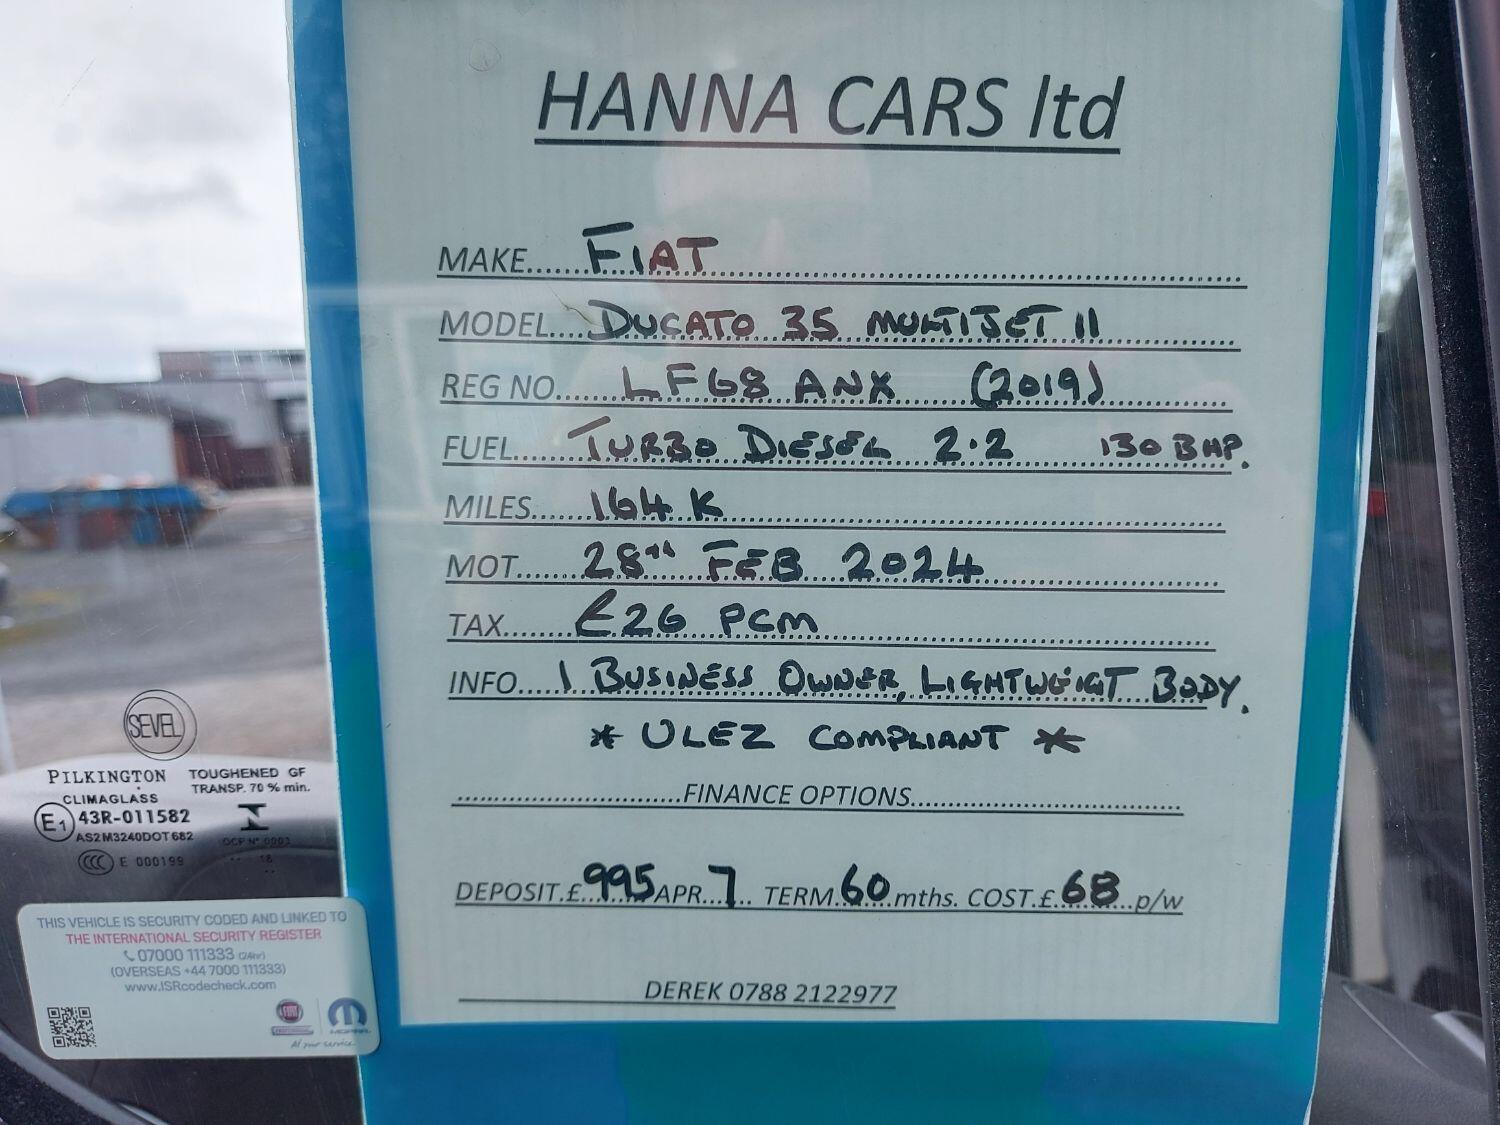 HANNA CARS ltd
MAKE.......FIAT
MODEL....DUCATO 35 MULTIJET II
REG NO.....LF68 ANX (2019)
FUEL....TURBO DIESEL 2.2 130 BHP.
MILES......164 K
MOT.......28TH FEB 2024
TAX.......£26 PCM
INFO.....1 BUSINESS OWNER, LIGHTWEIGT BODY.
* ULEZ COMPLIANT *
FINANCE OPTIONS
DEPOSIT.£..995..APR...7.. TERM.60.mths. COST.£.68...p/w
DEREK 0788 2122977
SEVEL
PILKINGTON TOUGHENED GF
TRANSP. 70 % min.
CLIMAGLASS
E1 43R-011582
AS2 M3240DOT682
CCC E 000199
18
THIS VEHICLE IS SECURITY CODED AND LINKED TO
THE INTERNATIONAL SECURITY REGISTER
07000 111333 (24hr)
(OVERSEAS +44 7000 111333)
www.ISRcodecheck.com
FIAT
PROFESSIONAL MOPAR
At your service